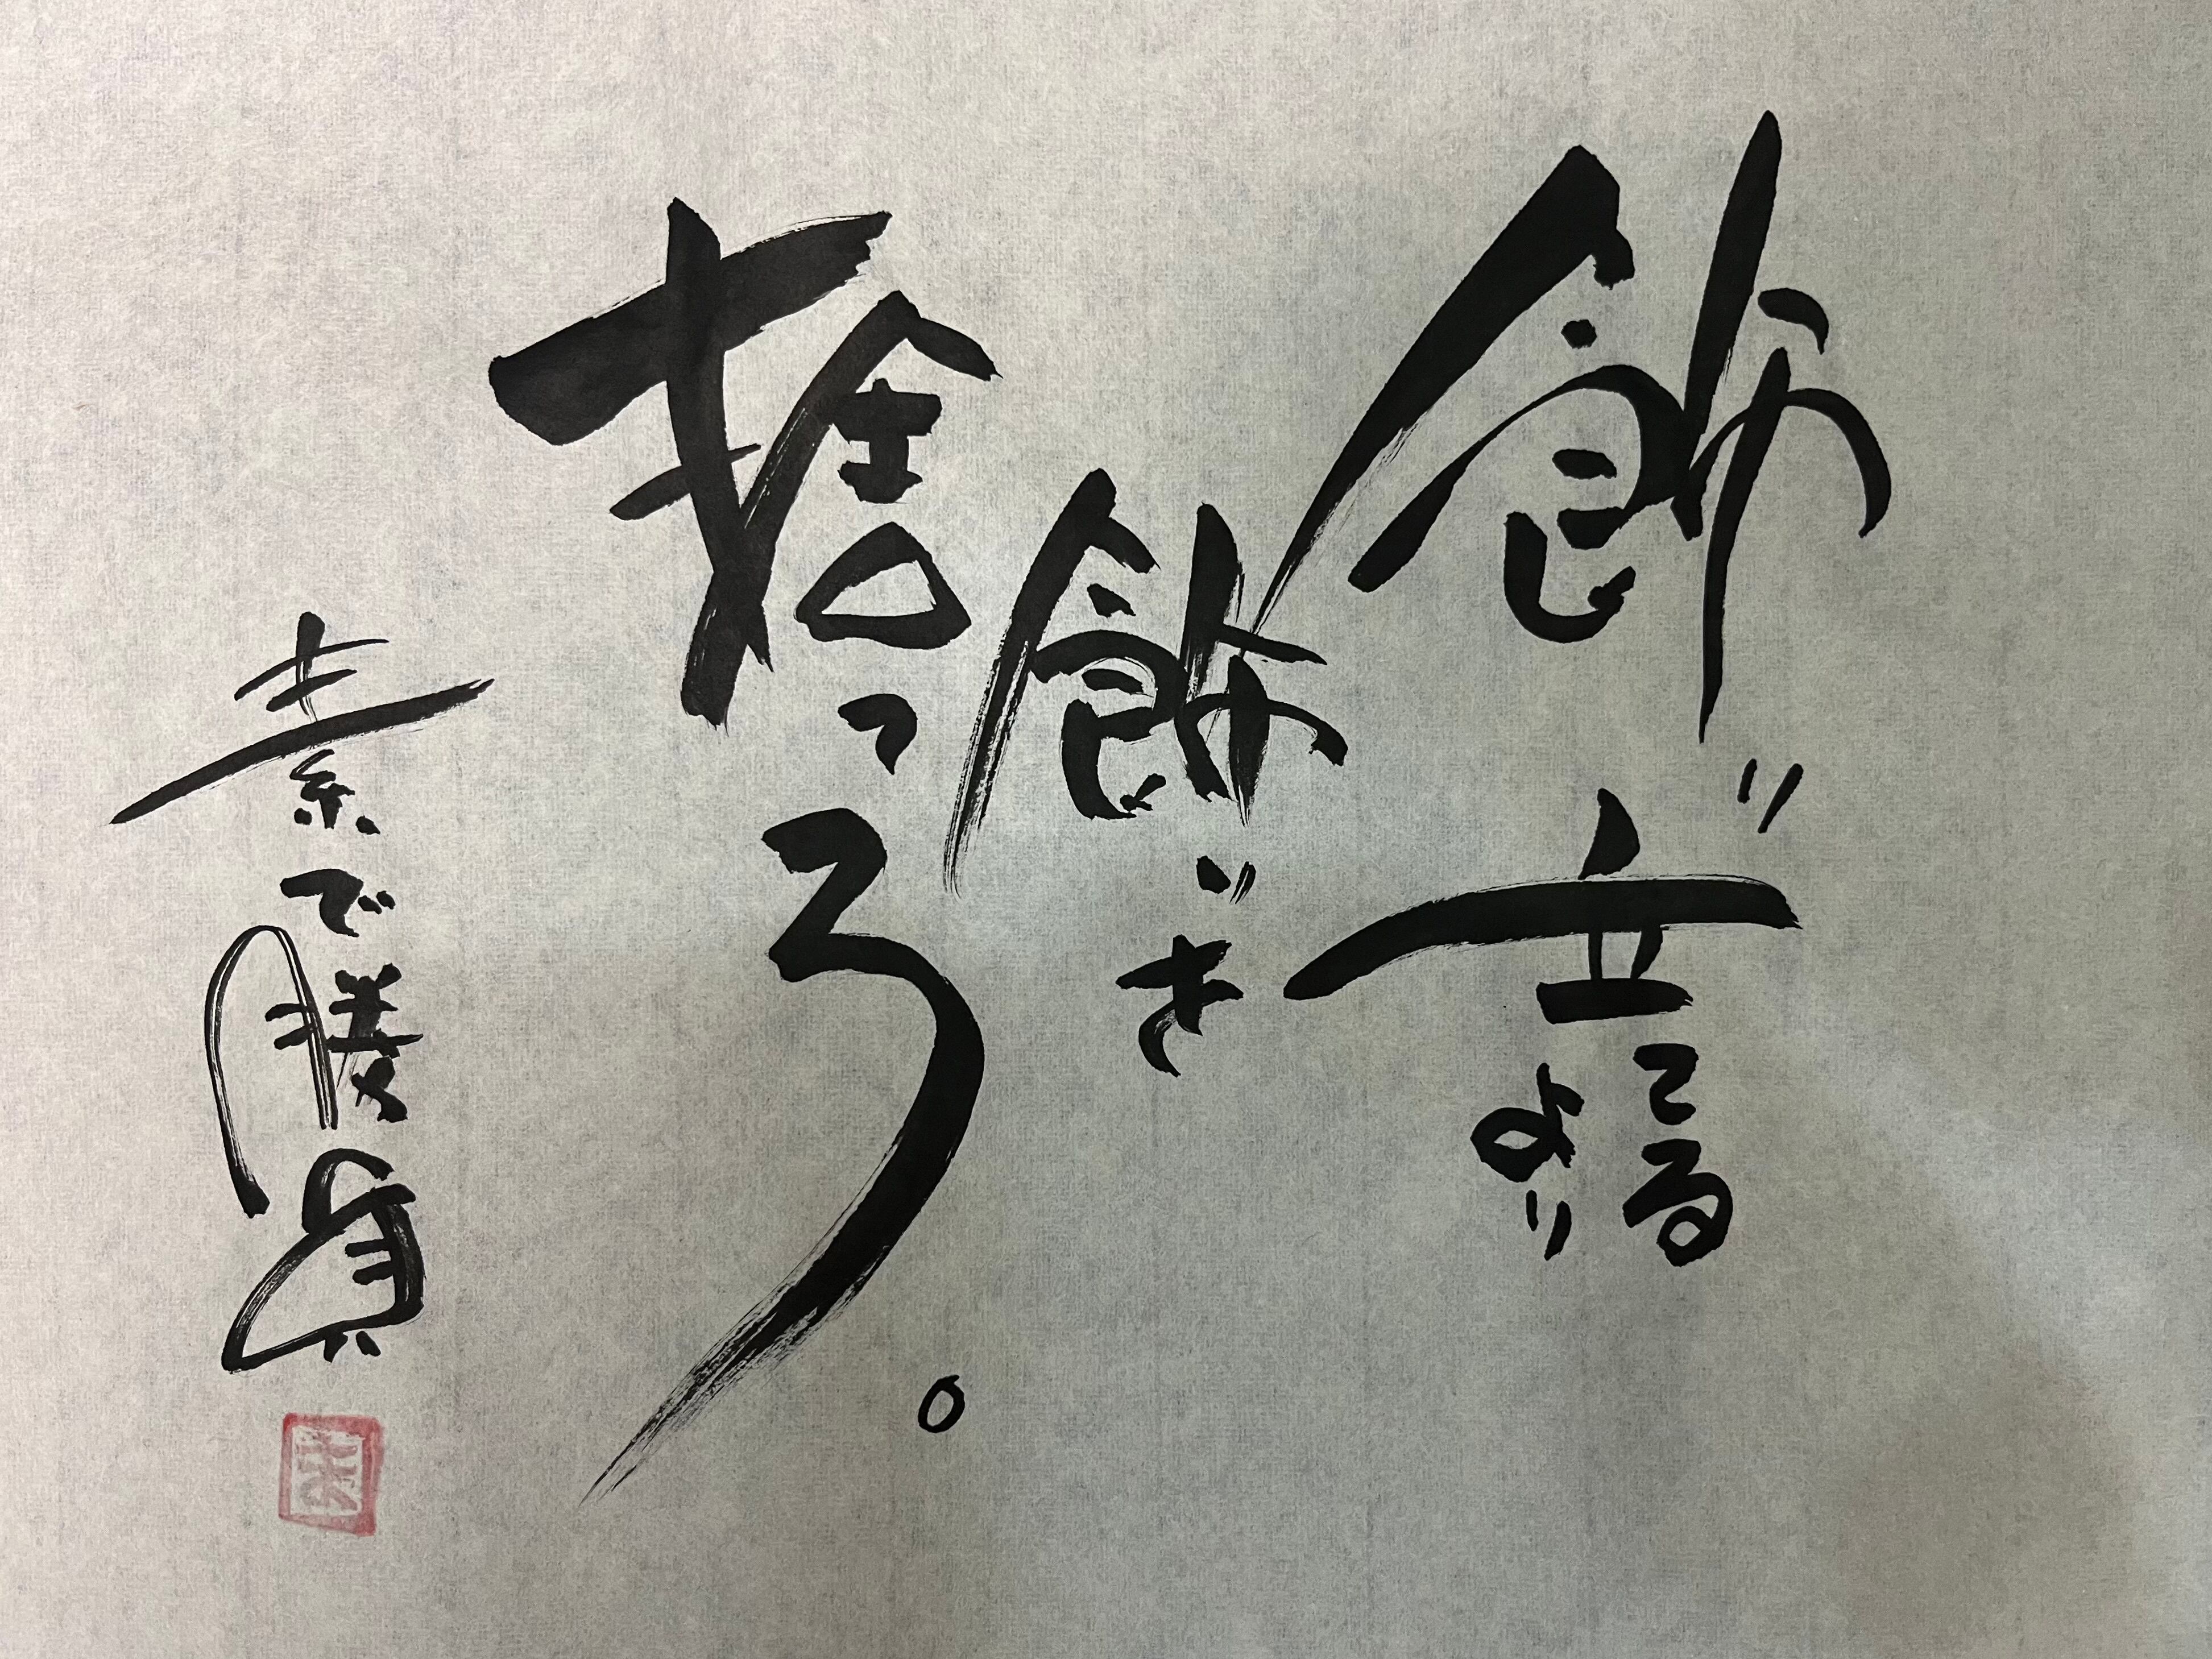 飾り立てる
より
飾りを
捨てろ。
素で勝負